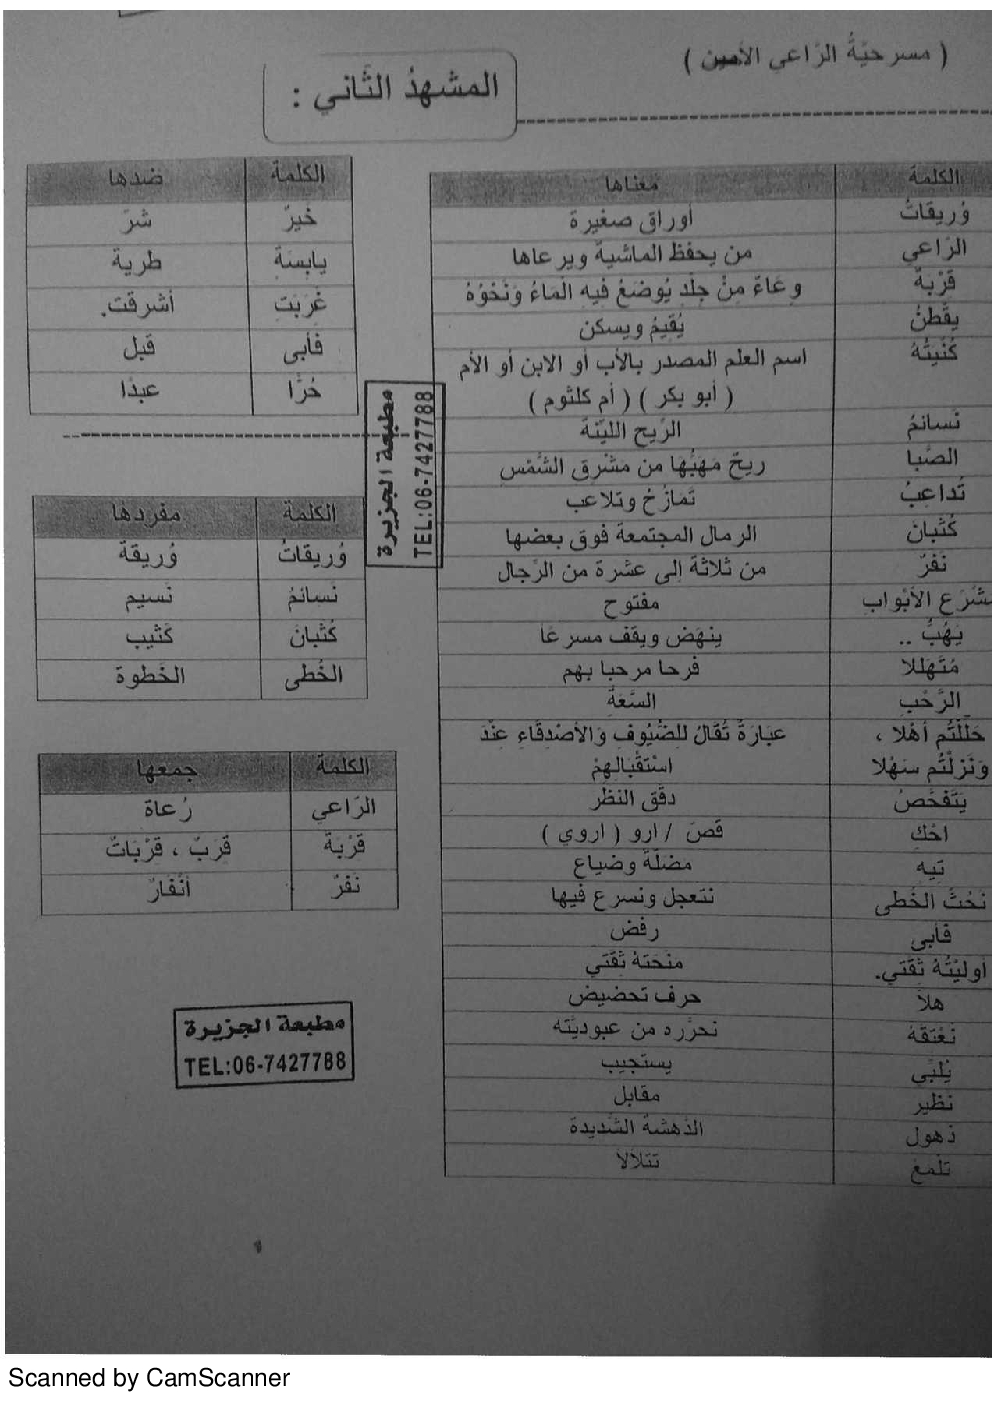 ( مسرحيّةُ الرّاعي الأمين )
المشهدُ الثّاني :
الكلمة معناها
وُريقاتُ أوراق صغيرة
الرّاعي من يحفظ الماشية ويرعاها
قِرْبَةٌ وِعَاءٌ مِنْ جِلْدٍ يُوضَعُ فيه المَاءُ وَنَحْوُهُ
يقْطنُ يُقيمُ ويسكن
كُنْيتُهُ اسم العلم المصدر بالأب أو الابن أو الأم
( أبو بكر ) ( أم كلثوم )
نَسائمُ الرّيح الليّنةُ
الصَّبا ريحٌ مَهَبُّهَا من مشْرق الشّمْس
تُداعِبُ تمازحُ وتلاعب
كُثْبان الرمال المجتمعة فوق بعضها
نَفَرٌ من ثلاثة إلى عشرة من الرّجال
مشْرَع الأبْواب مفتوح
يَهُبُّ .. ينهض ويقف مسرعًا
مُتَهَللا فرحا مرحبا بهم
الرَّحْب السّعة
حَلَلْتُم أهْلا ، عبَارَةٌ تُقَالُ للضُّيُوفِ وَالأصْدِقَاءِ عِنْدَ
وَنَزَلْتُم سَهْلا اسْتِقْبَالِهِمْ
يَتَفَحَّصُ دقّق النظر
احْكِ قصّ / ارو ( اروي )
تيه مضلّة وضياع
نَحُثّ الخُطى نتعجل ونسرع فيها
فأبى رفض
أوليْتُهُ ثقَتي. منحْتهُ ثقَتي
هلّا حرف تحضيض
نَعْتقهُ نحرّره من عبوديّته
يُلَبّي يستجيب
نظير مقابل
ذهول الدّهشة الشّديدة
تلْمعُ تتلألأ
الكلمة ضدها
خَيرٌ شَرٌ
يابسَة طرية
غَرَبَت أشرقت.
فَأبى قَبل
حُرًّا عبدًا
الكلمة مفردها
وُريقاتُ وُريقَة
نَسائمُ نَسيم
كُثْبانَ كَثيب
الخُطى الخُطوة
الكلمة جمعها
الرّاعي رُعاة
قرْبَة قِرَبٌ ، قرْبَاتٌ
نَفَرٌ أنْفَارٌ
مطبعة الجزيرة
TEL:06-7427788
مطبعة الجزيرة
TEL:06-7427788
Scanned by CamScanner